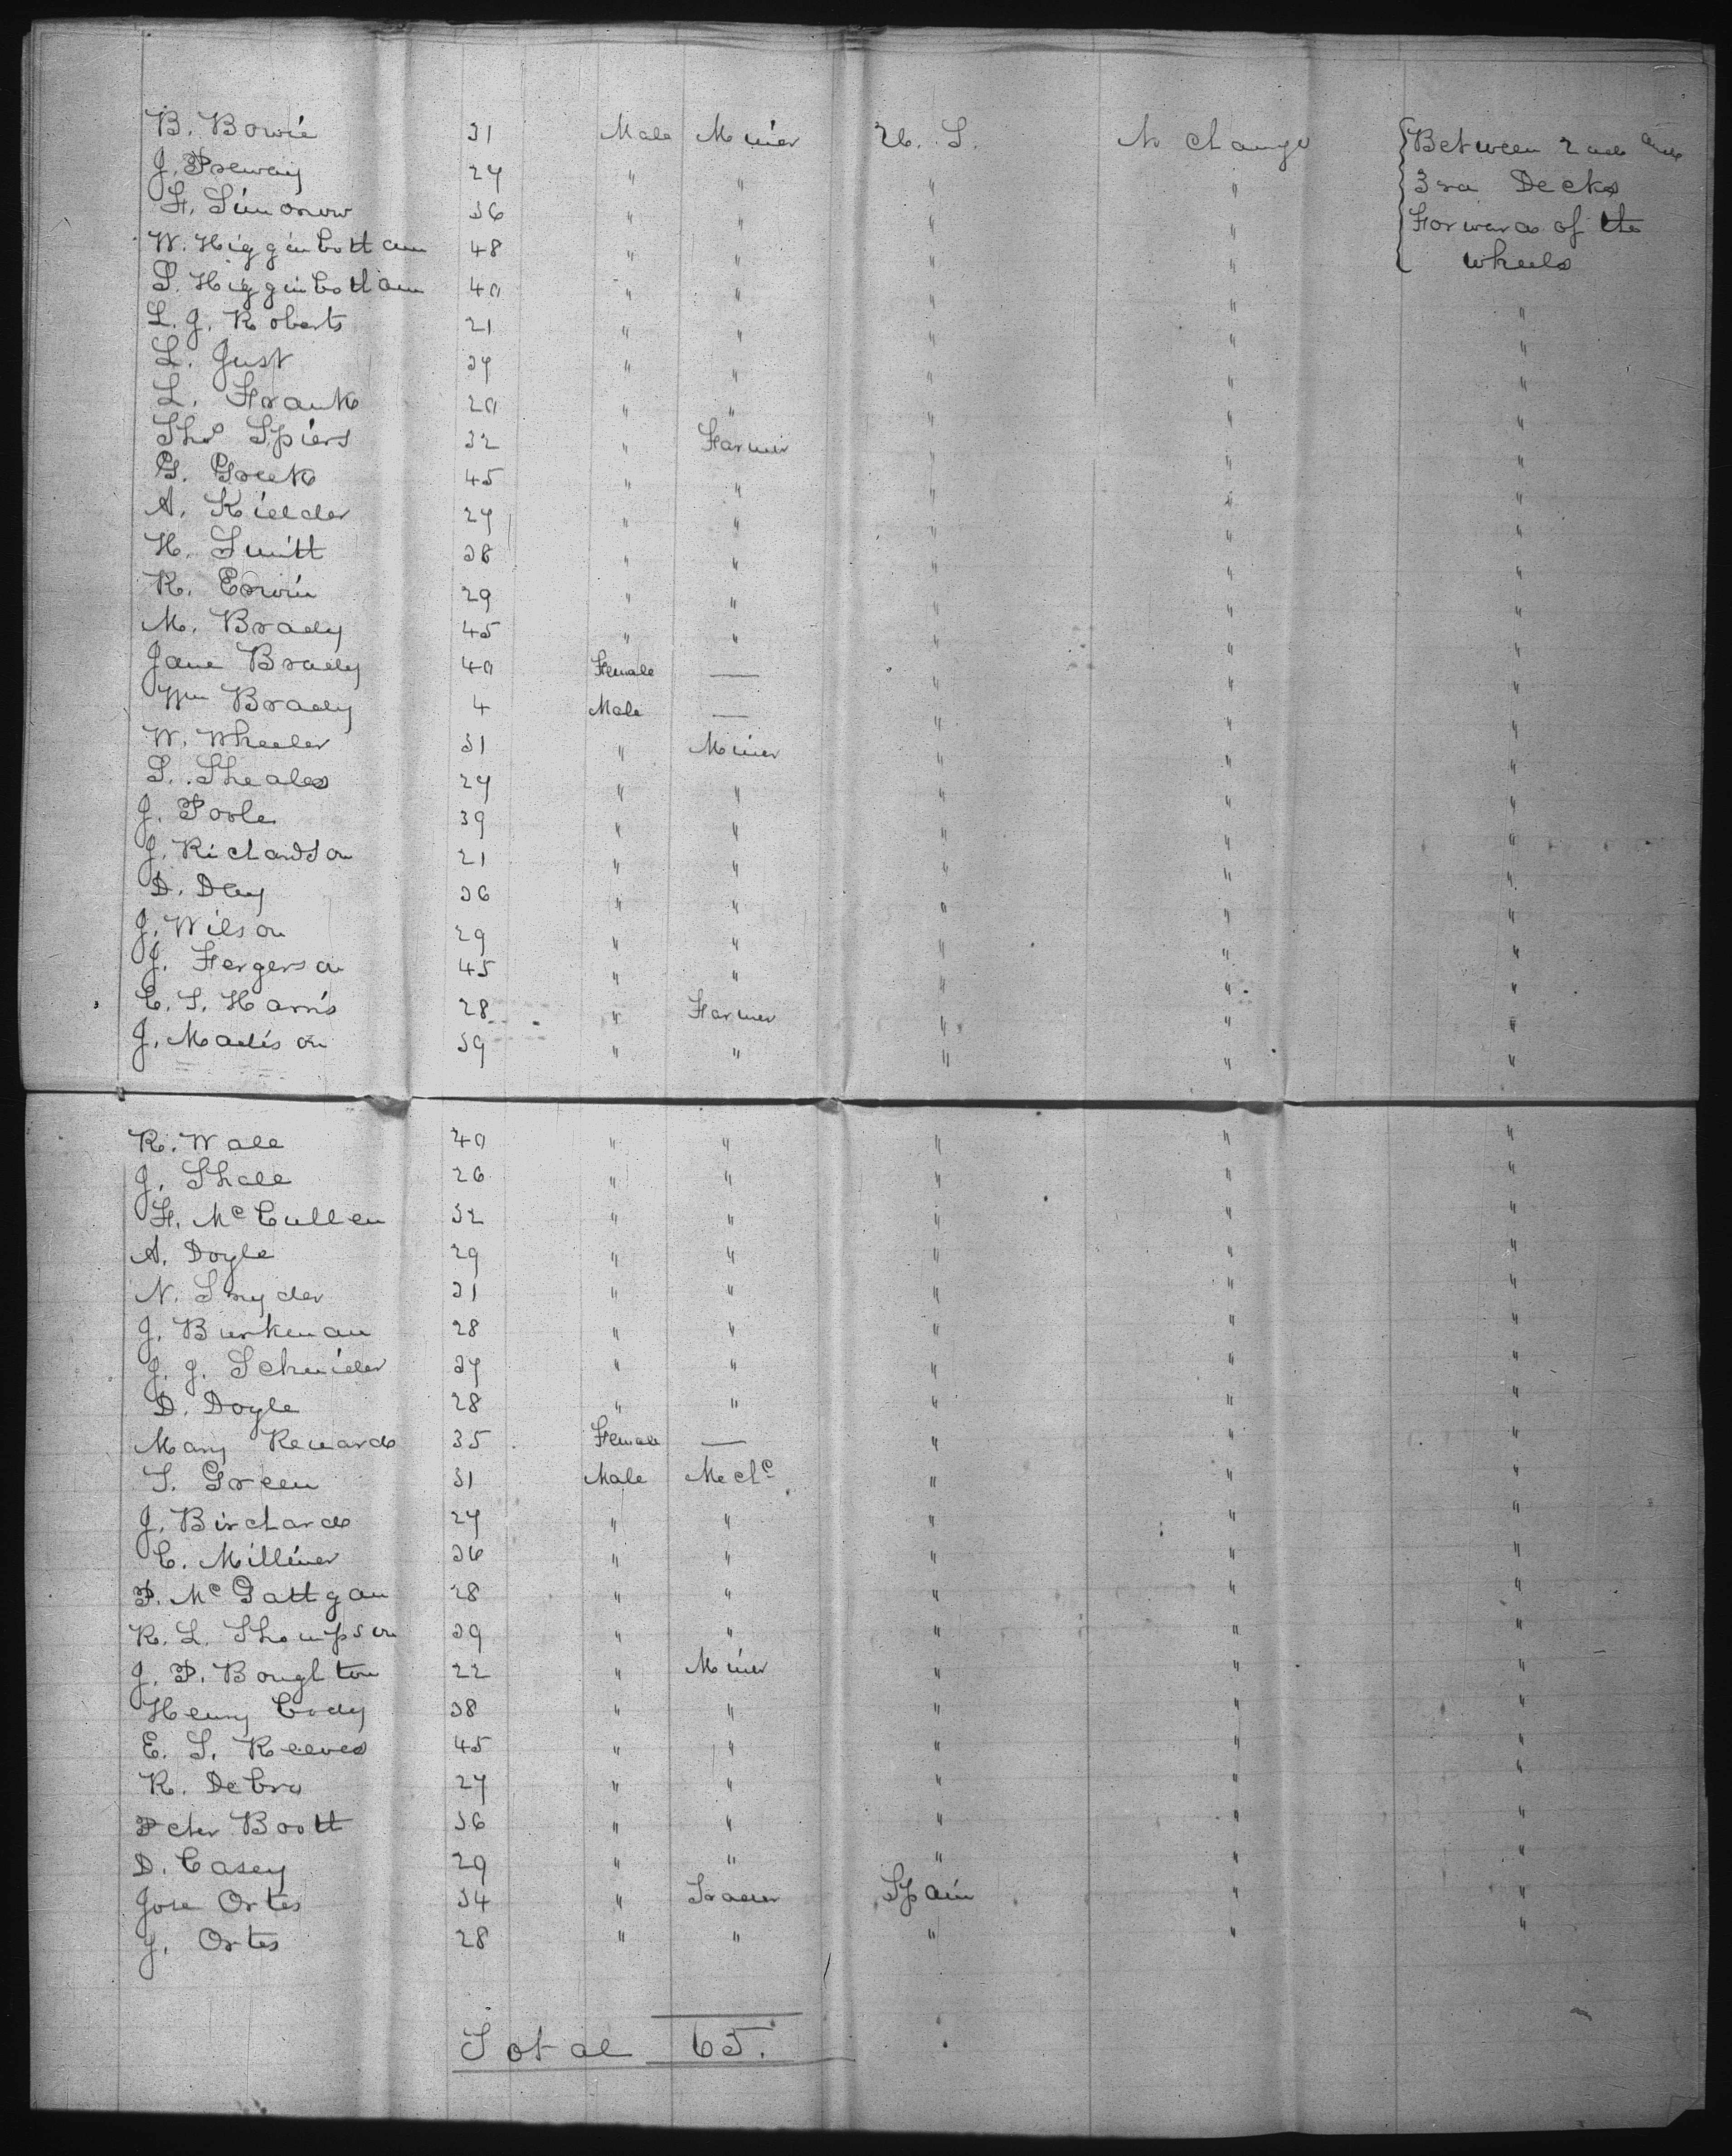 B. Bowie 31 Male Miner U. S. No Change Between 2nd and
J. Preway 27 " " " " 3rd Decks
F. Simonow 36 " " " " Forward of the
W. Higginbottam 48 " " " " Wheels
S. Higginbottam 40 " " " " "
L. J. Roberts 21 " " " " "
L. Just 37 " " " " "
L. Frank 20 " " " " "
Thos Spiers 32 " Farmer " " "
G. Greek 45 " " " " "
A. Kidder 27 " " " " "
H. Smitt 38 " " " " "
R. Erwin 29 " " " " "
M. Brady 45 " " " " "
Jane Brady 40 Female — " " "
Wm Brady 4 Male — " " "
W. Wheeler 31 " Miner " " "
S. Sheales 27 " " " " "
J. Poole 39 " " " " "
J. Richardson 21 " " " " "
D. Dey 36 " " " " "
J. Wilson 29 " " " " "
J. Fergerson 45 " " " " "
C. S. Harris 28 " Farmer " " "
J. Madison 39 " " " " "
R. Wall 40 " " " " "
J. Shall 26 " " " " "
F. McCullen 32 " " " " "
A. Doyle 29 " " " " "
N. Snyder 31 " " " " "
J. Burkenan 28 " " " " "
J. J. Schnider 37 " " " " "
D. Doyle 28 " " " " "
Mary Renard 35 Female — " " "
T. Green 31 Male Mechc " " "
J. Birchard 27 " " " " "
C. Milliner 36 " " " " "
P. McGattgan 28 " " " " "
R. L. Thompson 39 " " " " "
J. P. Boughton 22 " Miner " " "
Henry Cody 38 " " " " "
E. S. Reeves 45 " " " " "
R. Debro 27 " " " " "
Peter Boott 36 " " " " "
D. Casey 29 " " " " "
Jose Ortes 34 " Trader Spain " "
J. Ortes 28 " " " " "
Total 65.